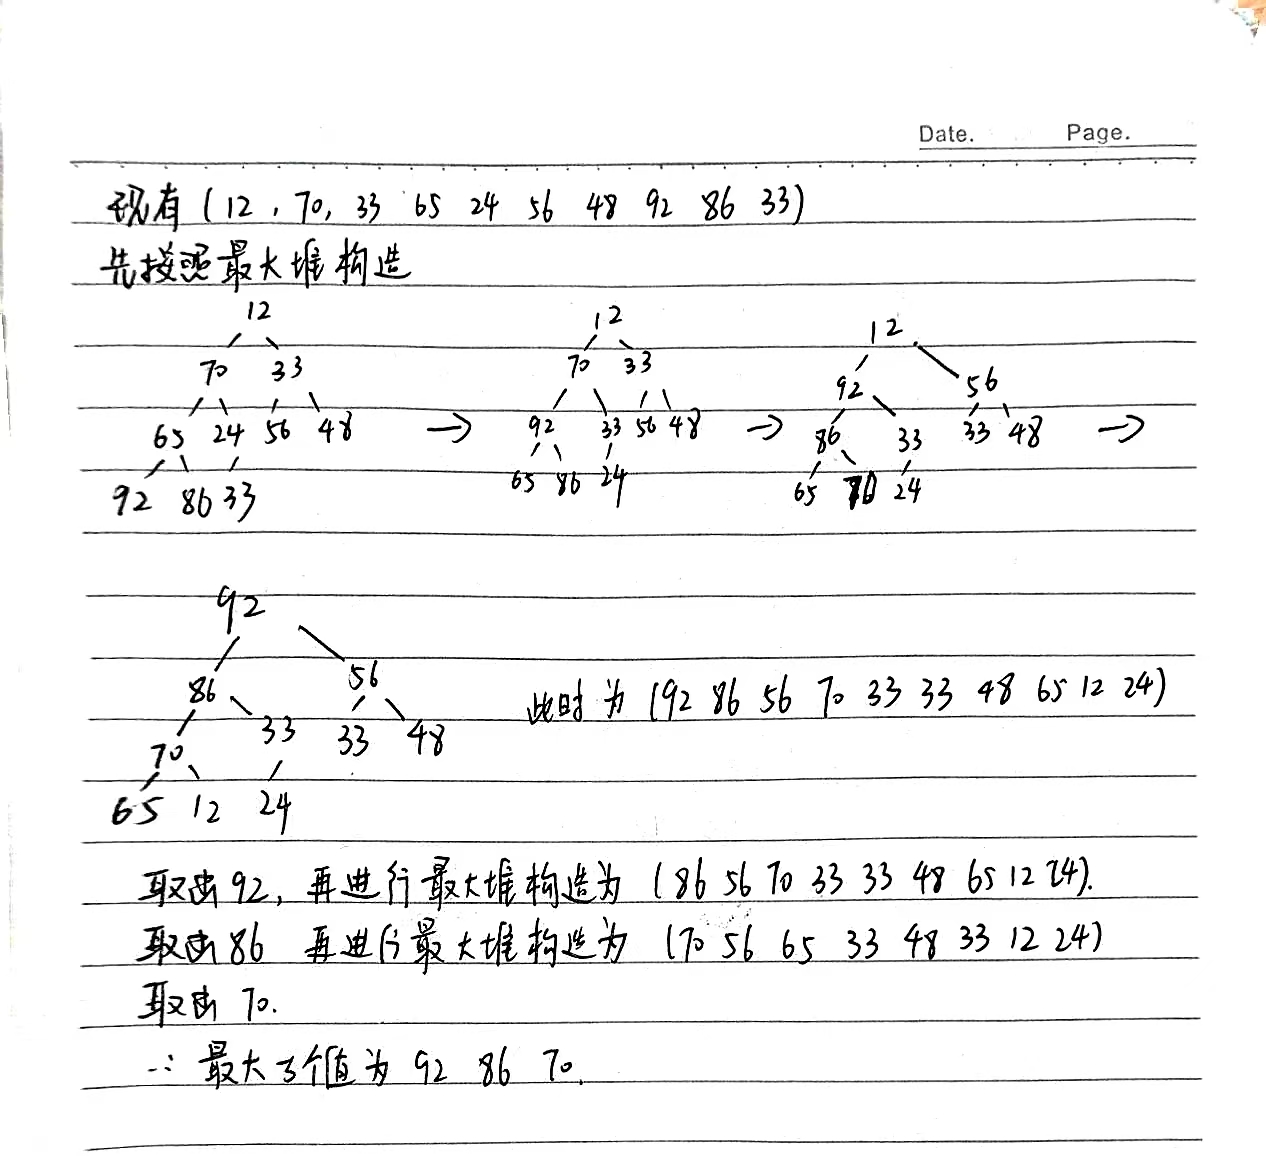 Date. Page.
现有 (12, 70, 33 65 24 56 48 92 86 33)
先按照最大堆构造
12
70 33
65 24 56 48
92 86 33
→
12
70 33
92 33 56 48
65 86 24
→
12
92 56
86 33 33 48
65 70 24
→
92
86 56
70 33 33 48
65 12 24
此时为 (92 86 56 70 33 33 48 65 12 24)
取出92, 再进行最大堆构造为 (86 56 70 33 33 48 65 12 24).
取出86 再进行最大堆构造为 (70 56 65 33 48 33 12 24)
取出 70.
∴ 最大3个值为 92 86 70.